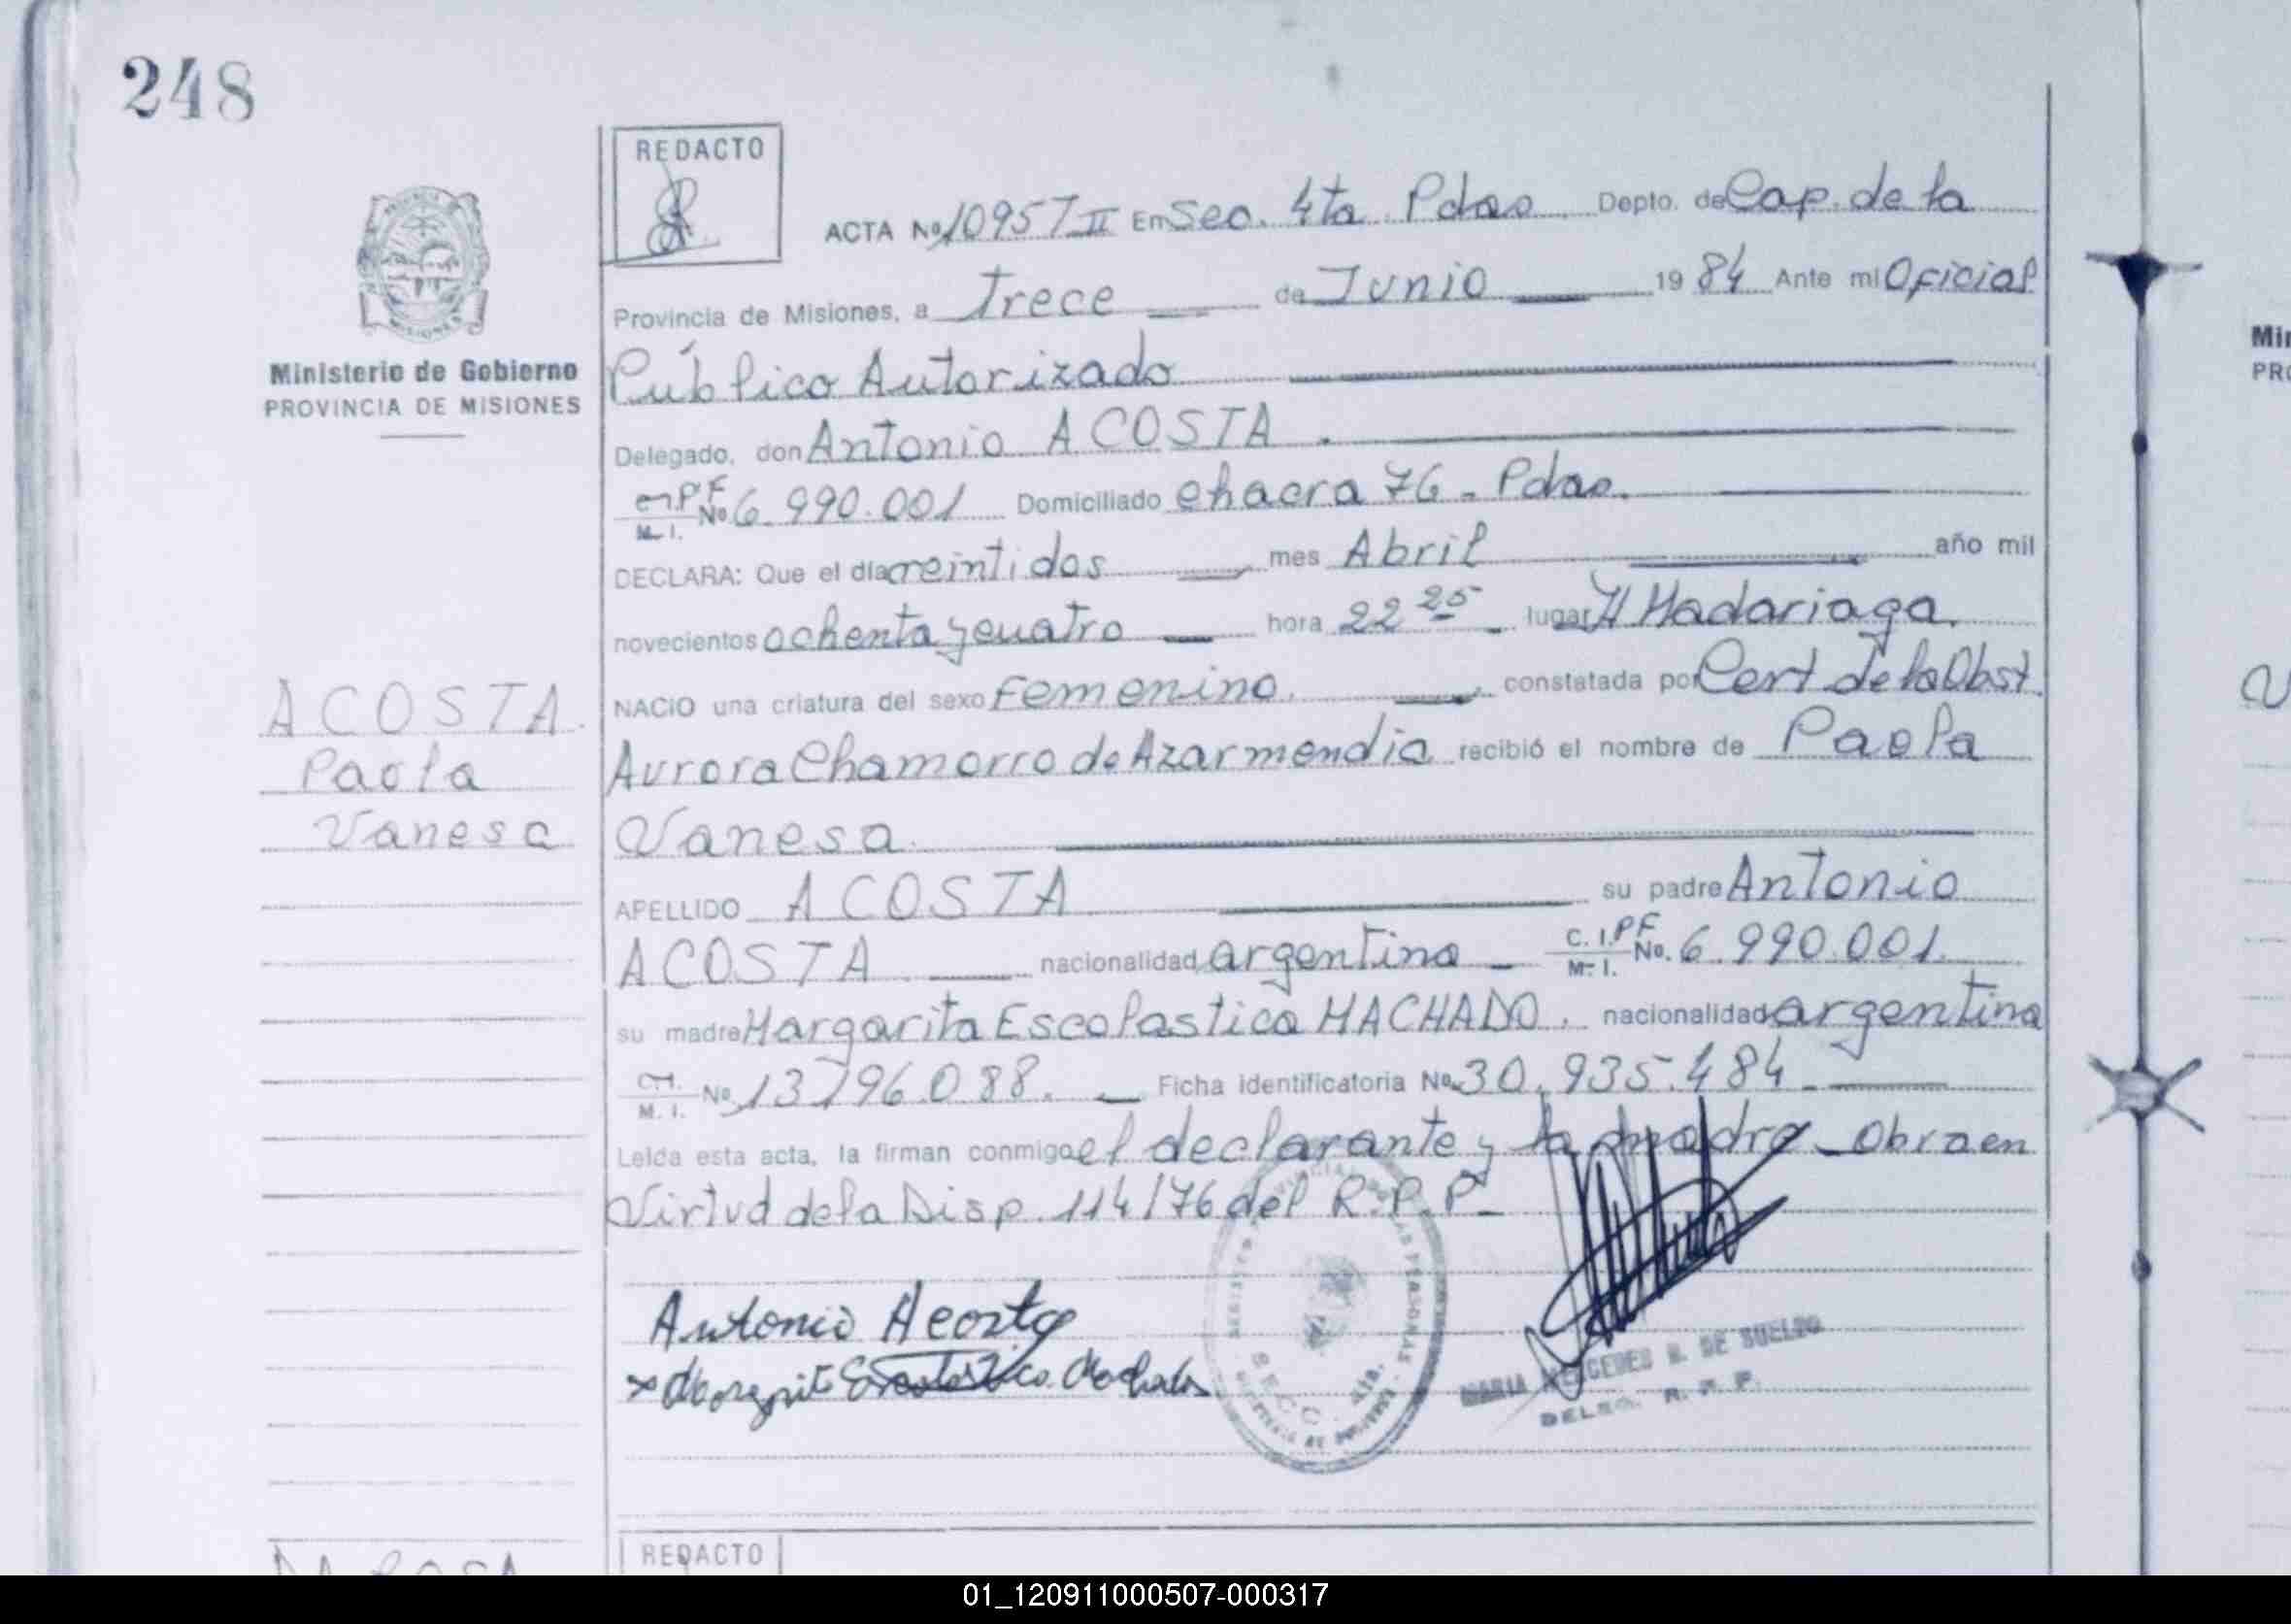 248
REDACTO
ACTA Nº 10957 II En Sec. 4ta Pdas Depto. de Cap. de la
Provincia de Misiones, a Trece de Junio 19 84 Ante mi Oficial
Ministerio de Gobierno
PROVINCIA DE MISIONES
Público Autorizado
Delegado, don Antonio ACOSTA.
P.F. M. I. No. 6.990.001 Domiciliado chacra 76 - Pdas.
DECLARA: Que el día veintidos mes Abril año mil
novecientos ochenta y cuatro hora 22 25 lugar H Madariaga.
NACIO una criatura del sexo femenino. constatada por Cert de la Obst.
Aurora Chamorro de Azarmendia recibió el nombre de Paola
Vanesa
APELLIDO ACOSTA su padre Antonio
ACOSTA nacionalidad argentina C. I. P F M. I. No. 6.990.001.
su madre Margarita Escolastica MACHADO. nacionalidad argentina
M. I. No. 13796.088. Ficha identificatoria No. 30.935.484
Leída esta acta, la firman conmigo el declarante y la madre - Obra en
Virtud de la Disp. 114/76 del R.P.P.
ACOSTA.
Paola
Vanesa
Antonio Acosta
x Margarita Escolastica Machado
SECC. 4ta.
MARIA MERCEDES R. DE SUELDO
DELEG. R. P. P.
REDACTO
Min
PRO
01_120911000507-000317